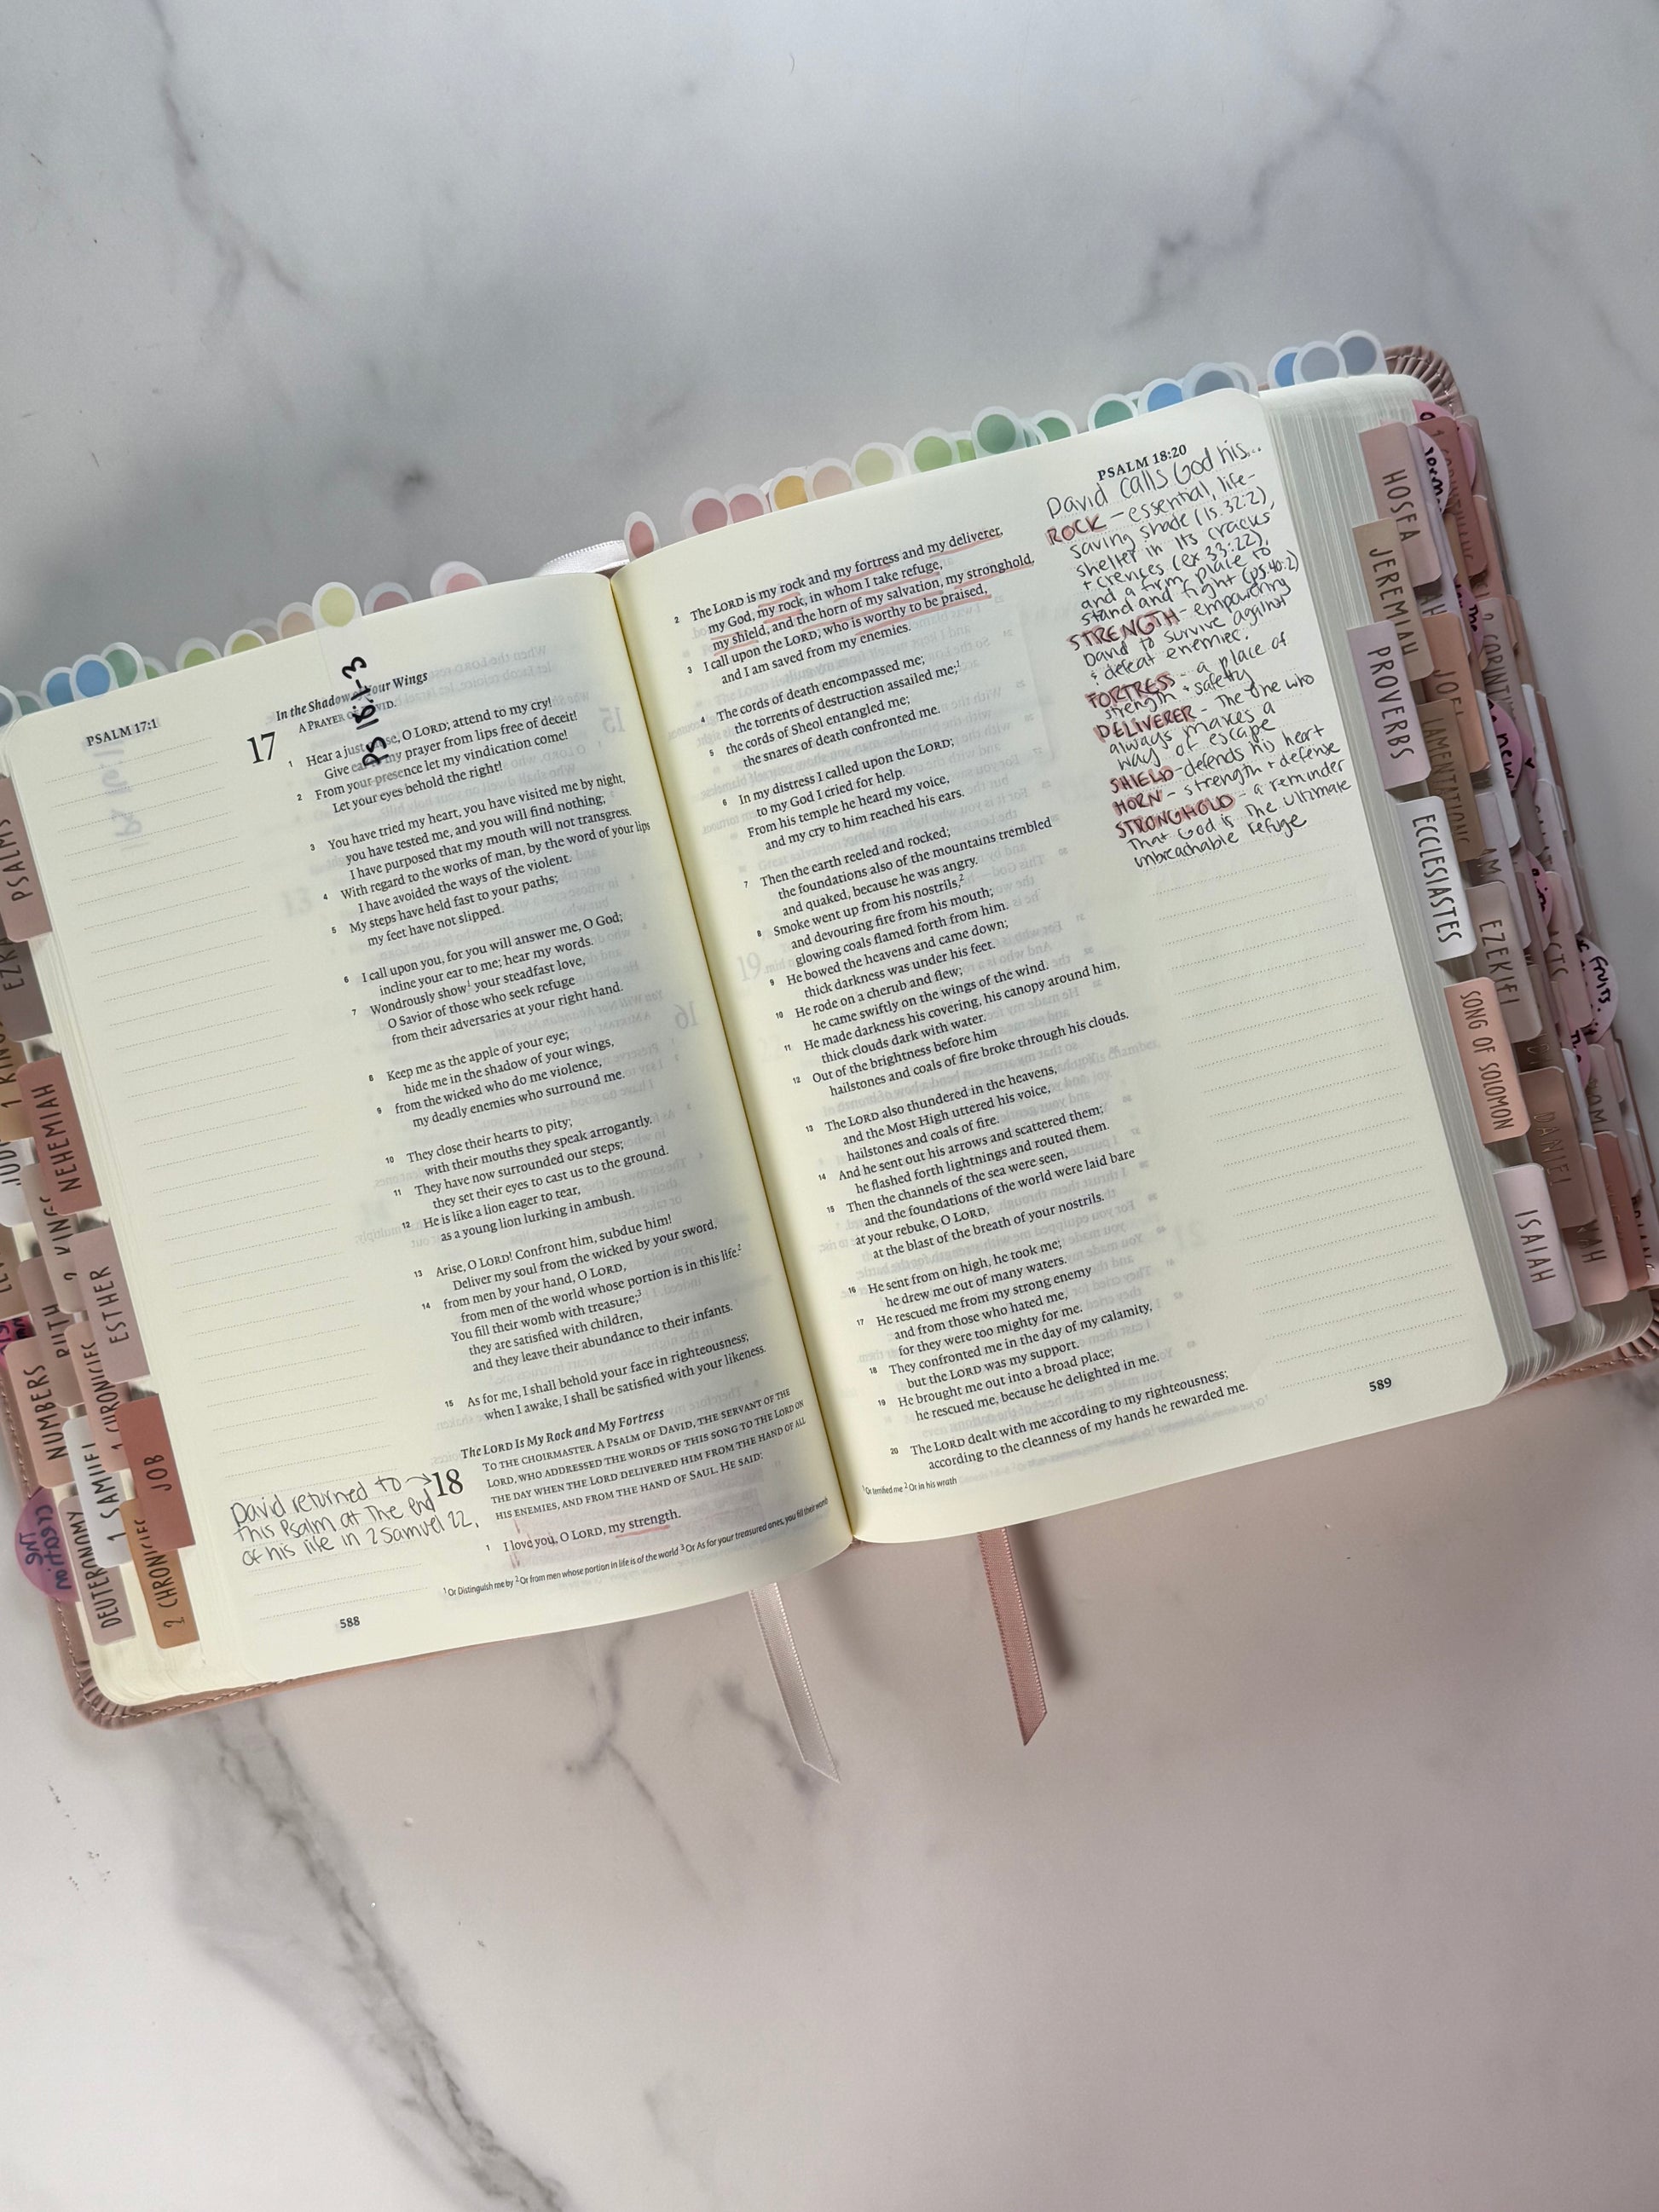 PSALM 17:1
PS 18:1-3
In the Shadow of Your Wings
17
A PRAYER OF DAVID.
1 Hear a just cause, O LORD; attend to my cry!
Give ear to my prayer from lips free of deceit!
2 From your presence let my vindication come!
Let your eyes behold the right!
3 You have tried my heart, you have visited me by night,
you have tested me, and you will find nothing;
I have purposed that my mouth will not transgress.
4 With regard to the works of man, by the word of your lips
I have avoided the ways of the violent.
5 My steps have held fast to your paths;
my feet have not slipped.
6 I call upon you, for you will answer me, O God;
incline your ear to me; hear my words.
7 Wondrously show¹ your steadfast love,
O Savior of those who seek refuge
from their adversaries at your right hand.
8 Keep me as the apple of your eye;
hide me in the shadow of your wings,
9 from the wicked who do me violence,
my deadly enemies who surround me.
10 They close their hearts to pity;
with their mouths they speak arrogantly.
11 They have now surrounded our steps;
they set their eyes to cast us to the ground.
12 He is like a lion eager to tear,
as a young lion lurking in ambush.
13 Arise, O LORD! Confront him, subdue him!
Deliver my soul from the wicked by your sword,
14 from men by your hand, O LORD,
from men of the world whose portion is in this life.²
You fill their womb with treasure;³
they are satisfied with children,
and they leave their abundance to their infants.
15 As for me, I shall behold your face in righteousness;
when I awake, I shall be satisfied with your likeness.
The LORD Is My Rock and My Fortress
18
TO THE CHOIRMASTER. A PSALM OF DAVID, THE SERVANT OF THE
LORD, WHO ADDRESSED THE WORDS OF THIS SONG TO THE LORD ON
THE DAY WHEN THE LORD DELIVERED HIM FROM THE HAND OF ALL
HIS ENEMIES, AND FROM THE HAND OF SAUL. HE SAID:
1 I love you, O LORD, my strength.
David returned to →
this Psalm at the end
of his life in 2 Samuel 22.
¹ Or Distinguish me by ² Or from men whose portion in life is of the world ³ Or As for your treasured ones, you fill their womb
588
PSALM 18:20
2 The LORD is my rock and my fortress and my deliverer,
my God, my rock, in whom I take refuge,
my shield, and the horn of my salvation, my stronghold.
3 I call upon the LORD, who is worthy to be praised,
and I am saved from my enemies.
4 The cords of death encompassed me;
the torrents of destruction assailed me;¹
5 the cords of Sheol entangled me;
the snares of death confronted me.
6 In my distress I called upon the LORD;
to my God I cried for help.
From his temple he heard my voice,
and my cry to him reached his ears.
7 Then the earth reeled and rocked;
the foundations also of the mountains trembled
and quaked, because he was angry.
8 Smoke went up from his nostrils,²
and devouring fire from his mouth;
glowing coals flamed forth from him.
9 He bowed the heavens and came down;
thick darkness was under his feet.
10 He rode on a cherub and flew;
he came swiftly on the wings of the wind.
11 He made darkness his covering, his canopy around him,
thick clouds dark with water.
12 Out of the brightness before him
hailstones and coals of fire broke through his clouds.
13 The LORD also thundered in the heavens,
and the Most High uttered his voice,
hailstones and coals of fire.
14 And he sent out his arrows and scattered them;
he flashed forth lightnings and routed them.
15 Then the channels of the sea were seen,
and the foundations of the world were laid bare
at your rebuke, O LORD,
at the blast of the breath of your nostrils.
16 He sent from on high, he took me;
he drew me out of many waters.
17 He rescued me from my strong enemy
and from those who hated me,
for they were too mighty for me.
18 They confronted me in the day of my calamity,
but the LORD was my support.
19 He brought me out into a broad place;
he rescued me, because he delighted in me.
20 The LORD dealt with me according to my righteousness;
according to the cleanness of my hands he rewarded me.
¹ Or terrified me ² Or in his wrath
589
David calls God his...
ROCK - essential, life-
saving shade (Is. 32:2),
shelter in its cracks
+ crevices (Ex 33:22),
and a firm place to
stand and fight (Ps. 40:2)
STRENGTH - empowering
David to survive against
+ defeat enemies.
FORTRESS - a place of
strength + safety
DELIVERER - The one who
always makes a
way of escape
SHIELD - defends his heart
HORN - strength + defense
STRONGHOLD - a reminder
that God is the ultimate
unbreachable refuge
PSALMS
EZRA
NEHEMIAH
ESTHER
JOB
RUTH
2 KINGS
1 CHRONICLES
NUMBERS
1 SAMUEL
DEUTERONOMY
2 CHRONICLES
THE
CREATION
HOSEA
JEREMIAH
PROVERBS
ECCLESIASTES
SONG OF SOLOMON
ISAIAH
JOEL
LAMENTATIONS
EZEKIEL
DANIEL
ACTS
new
Fruits